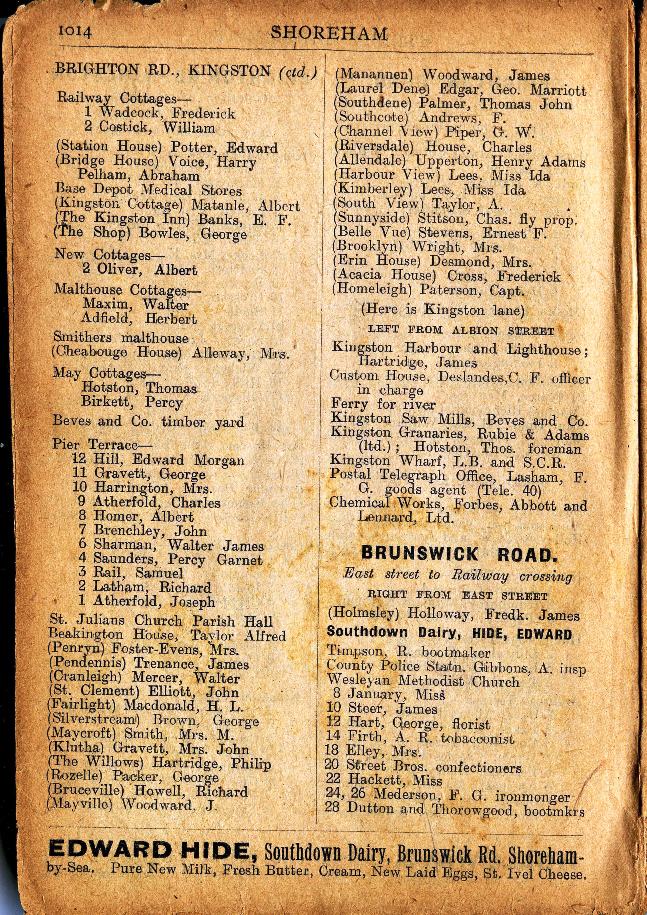 1014
SHOREHAM
BRIGHTON RD., KINGSTON (ctd.)
Railway Cottages—
1 Wadcock, Frederick
2 Costick, William
(Station House) Potter, Edward
(Bridge House) Voice, Harry
Pelham, Abraham
Base Depot Medical Stores
(Kingston Cottage) Matanle, Albert
(The Kingston Inn) Banks, E. F.
(The Shop) Bowles, George
New Cottages—
2 Oliver, Albert
Malthouse Cottages—
Maxim, Walter
Adfield, Herbert
Smithers malthouse
(Cheabouge House) Alleway, Mrs.
May Cottages—
Hotston, Thomas
Birkett, Percy
Beves and Co. timber yard
Pier Terrace—
12 Hill, Edward Morgan
11 Gravett, George
10 Harrington, Mrs.
9 Atherfold, Charles
8 Homer, Albert
7 Brenchley, John
6 Sharman, Walter James
4 Saunders, Percy Garnet
3 Rail, Samuel
2 Latham, Richard
1 Atherfold, Joseph
St. Julians Church Parish Hall
Beakington House, Taylor Alfred
(Penryn) Foster-Evens, Mrs.
(Pendennis) Trenance, James
(Cranleigh) Mercer, Walter
(St. Clement) Elliott, John
(Fairlight) Macdonald, H. L.
(Silverstream) Brown, George
(Maycroft) Smith, Mrs. M.
(Klutha) Gravett, Mrs. John
(The Willows) Hartridge, Philip
(Rozelle) Packer, George
(Bruceville) Howell, Richard
(Mayville) Woodward, J.
(Manannen) Woodward, James
(Laurel Dene) Edgar, Geo. Marriott
(Southdene) Palmer, Thomas John
(Southcote) Andrews, F.
(Channel View) Piper, G. W.
(Riversdale) House, Charles
(Allendale) Upperton, Henry Adams
(Harbour View) Lees, Miss Ida
(Kimberley) Lees, Miss Ida
(South View) Taylor, A.
(Sunnyside) Stitson, Chas. fly prop.
(Belle Vue) Stevens, Ernest F.
(Brooklyn) Wright, Mrs.
(Erin House) Desmond, Mrs.
(Acacia House) Cross, Frederick
(Homeleigh) Paterson, Capt.
(Here is Kingston lane)
LEFT FROM ALBION STREET
Kingston Harbour and Lighthouse;
Hartridge, James
Custom House, Deslandes, C. F. officer
in charge
Ferry for river
Kingston Saw Mills, Beves and Co.
Kingston Granaries, Rubie & Adams
(ltd.); Hotston, Thos. foreman
Kingston Wharf, L.B. and S.C.R.
Postal Telegraph Office, Lasham, F.
G. goods agent (Tele. 40)
Chemical Works, Forbes, Abbott and
Lennard, Ltd.
BRUNSWICK ROAD.
East street to Railway crossing
RIGHT FROM EAST STREET
(Holmsley) Holloway, Fredk. James
Southdown Dairy, HIDE, EDWARD
Timpson, R. bootmaker
County Police Statn. Gibbons, A. insp
Wesleyan Methodist Church
8 January, Miss
10 Steer, James
12 Hart, George, florist
14 Firth, A. R. tobacconist
18 Elley, Mrs.
20 Street Bros. confectioners
22 Hackett, Miss
24, 26 Mederson, F. G. ironmonger
28 Dutton and Thorowgood, bootmkrs
EDWARD HIDE, Southdown Dairy, Brunswick Rd. Shoreham-
by-Sea. Pure New Milk, Fresh Butter, Cream, New Laid Eggs, St. Ivel Cheese.